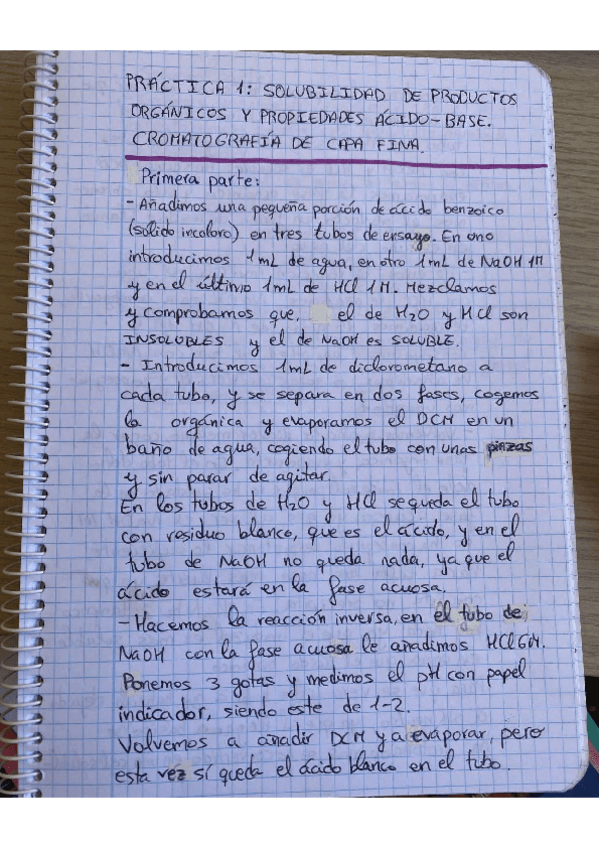 PRÁCTICA 1: SOLUBILIDAD DE PRODUCTOS
ORGÁNICOS Y PROPIEDADES ÁCIDO-BASE.
CROMATOGRAFÍA DE CAPA FINA.
Primera parte:
- Añadimos una pequeña porción de ácido benzoico
(sólido incoloro) en tres tubos de ensayo. En uno
introducimos 1mL de agua, en otro 1mL de NaOH 1M
y en el último 1mL de HCl 1M. Mezclamos
y comprobamos que, el de H2O y HCl son
INSOLUBLES y el de NaOH es SOLUBLE.
- Introducimos 1mL de diclorometano a
cada tubo, y se separa en dos fases, cogemos
la orgánica y evaporamos el DCM en un
baño de agua, cogiendo el tubo con unas pinzas
y sin parar de agitar.
En los tubos de H2O y HCl se queda el tubo
con residuo blanco, que es el ácido, y en el
tubo de NaOH no queda nada, ya que el
ácido estará en la fase acuosa.
- Hacemos la reacción inversa, en el tubo de
NaOH con la fase acuosa le añadimos HCl 6M.
Ponemos 3 gotas y medimos el pH con papel
indicador, siendo este de 1-2.
Volvemos a añadir DCM y a evaporar, pero
esta vez sí queda el ácido blanco en el tubo.